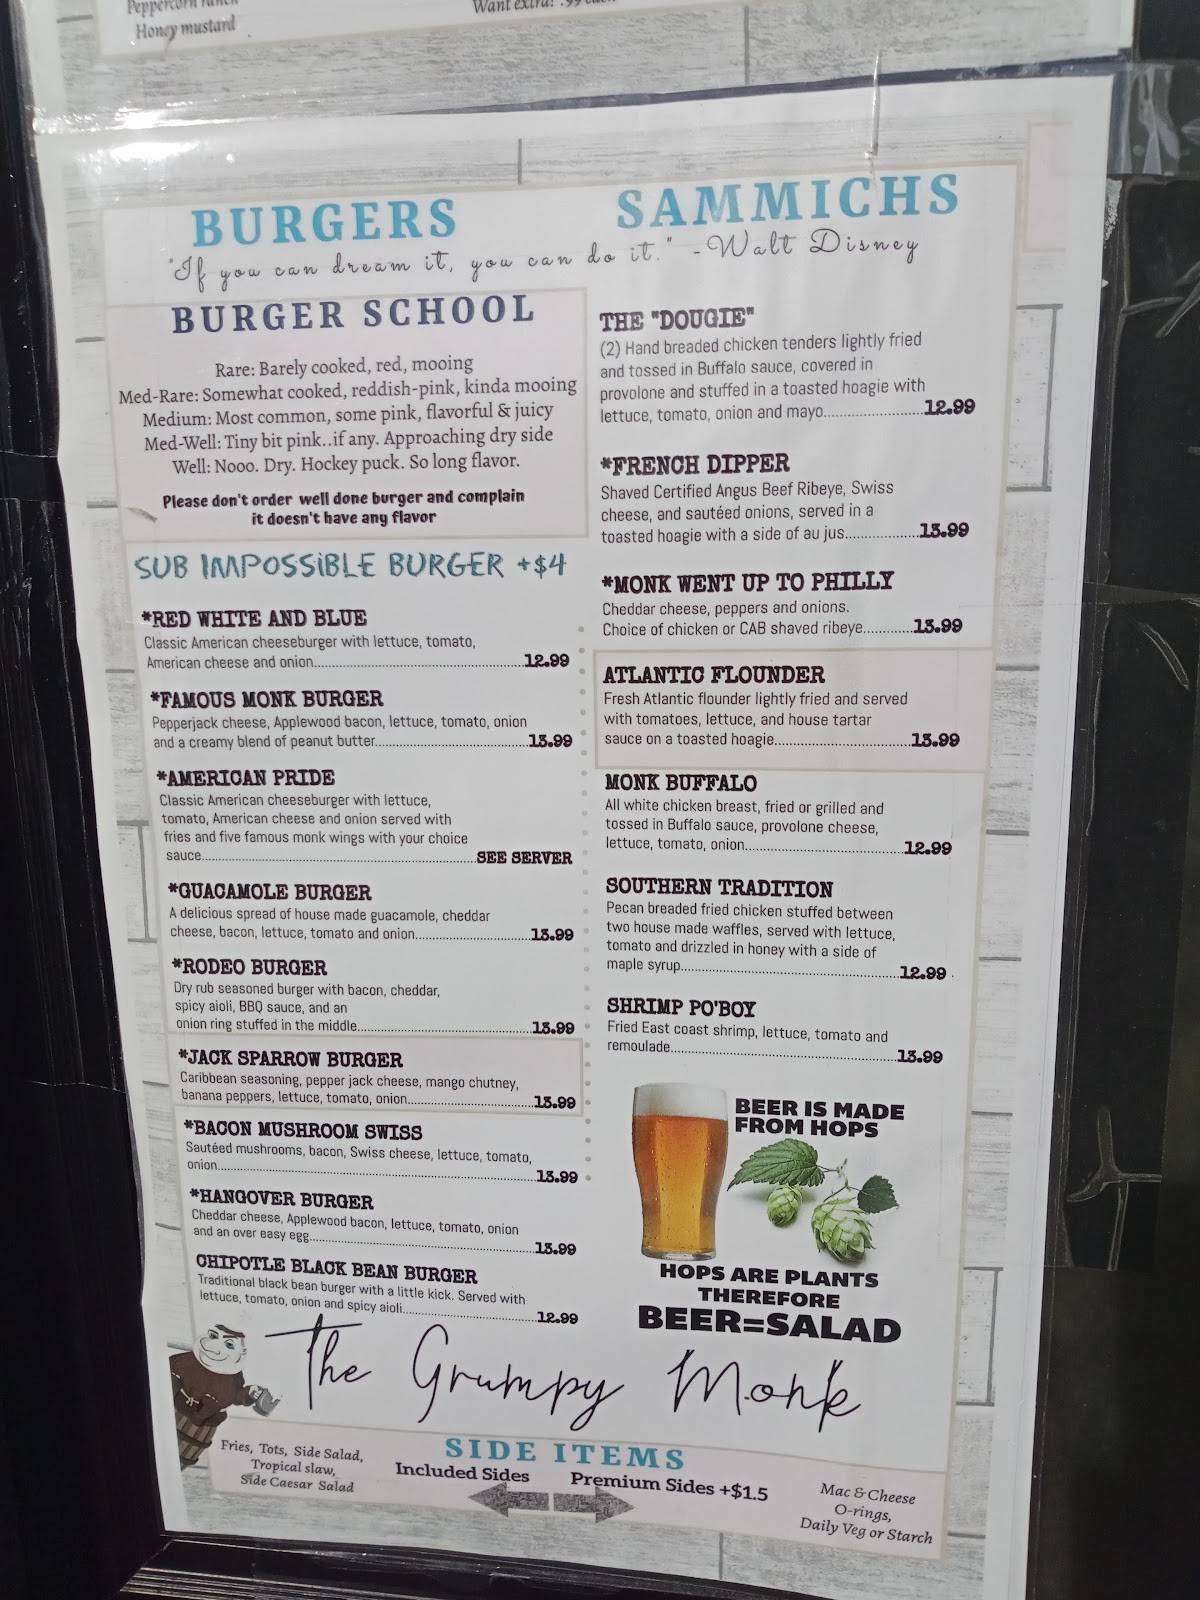 Peppercorn ranch
Honey mustard
Want extra? .99 each
BURGERS
SAMMICHS
"If you can dream it, you can do it." -Walt Disney
BURGER SCHOOL
Rare: Barely cooked, red, mooing
Med-Rare: Somewhat cooked, reddish-pink, kinda mooing
Medium: Most common, some pink, flavorful & juicy
Med-Well: Tiny bit pink..if any. Approaching dry side
Well: Nooo. Dry. Hockey puck. So long flavor.
Please don't order well done burger and complain
it doesn't have any flavor
SUB IMPOSSIBLE BURGER +$4
*RED WHITE AND BLUE
Classic American cheeseburger with lettuce, tomato,
American cheese and onion...12.99
*FAMOUS MONK BURGER
Pepperjack cheese, Applewood bacon, lettuce, tomato, onion
and a creamy blend of peanut butter...13.99
*AMERICAN PRIDE
Classic American cheeseburger with lettuce,
tomato, American cheese and onion served with
fries and five famous monk wings with your choice
sauce...SEE SERVER
*GUACAMOLE BURGER
A delicious spread of house made guacamole, cheddar
cheese, bacon, lettuce, tomato and onion...13.99
*RODEO BURGER
Dry rub seasoned burger with bacon, cheddar,
spicy aioli, BBQ sauce, and an
onion ring stuffed in the middle...13.99
*JACK SPARROW BURGER
Caribbean seasoning, pepper jack cheese, mango chutney,
banana peppers, lettuce, tomato, onion...13.99
*BACON MUSHROOM SWISS
Sautéed mushrooms, bacon, Swiss cheese, lettuce, tomato,
onion...13.99
*HANGOVER BURGER
Cheddar cheese, Applewood bacon, lettuce, tomato, onion
and an over easy egg...13.99
CHIPOTLE BLACK BEAN BURGER
Traditional black bean burger with a little kick. Served with
lettuce, tomato, onion and spicy aioli...12.99
THE "DOUGIE"
(2) Hand breaded chicken tenders lightly fried
and tossed in Buffalo sauce, covered in
provolone and stuffed in a toasted hoagie with
lettuce, tomato, onion and mayo...12.99
*FRENCH DIPPER
Shaved Certified Angus Beef Ribeye, Swiss
cheese, and sautéed onions, served in a
toasted hoagie with a side of au jus...13.99
*MONK WENT UP TO PHILLY
Cheddar cheese, peppers and onions.
Choice of chicken or CAB shaved ribeye...13.99
ATLANTIC FLOUNDER
Fresh Atlantic flounder lightly fried and served
with tomatoes, lettuce, and house tartar
sauce on a toasted hoagie...13.99
MONK BUFFALO
All white chicken breast, fried or grilled and
tossed in Buffalo sauce, provolone cheese,
lettuce, tomato, onion...12.99
SOUTHERN TRADITION
Pecan breaded fried chicken stuffed between
two house made waffles, served with lettuce,
tomato and drizzled in honey with a side of
maple syrup...12.99
SHRIMP PO'BOY
Fried East coast shrimp, lettuce, tomato and
remoulade...13.99
BEER IS MADE
FROM HOPS
HOPS ARE PLANTS
THEREFORE
BEER=SALAD
The Grumpy Monk
SIDE ITEMS
Fries, Tots, Side Salad,
Tropical slaw,
Side Caesar Salad
Included Sides
Premium Sides +$1.5
Mac & Cheese
O-rings,
Daily Veg or Starch